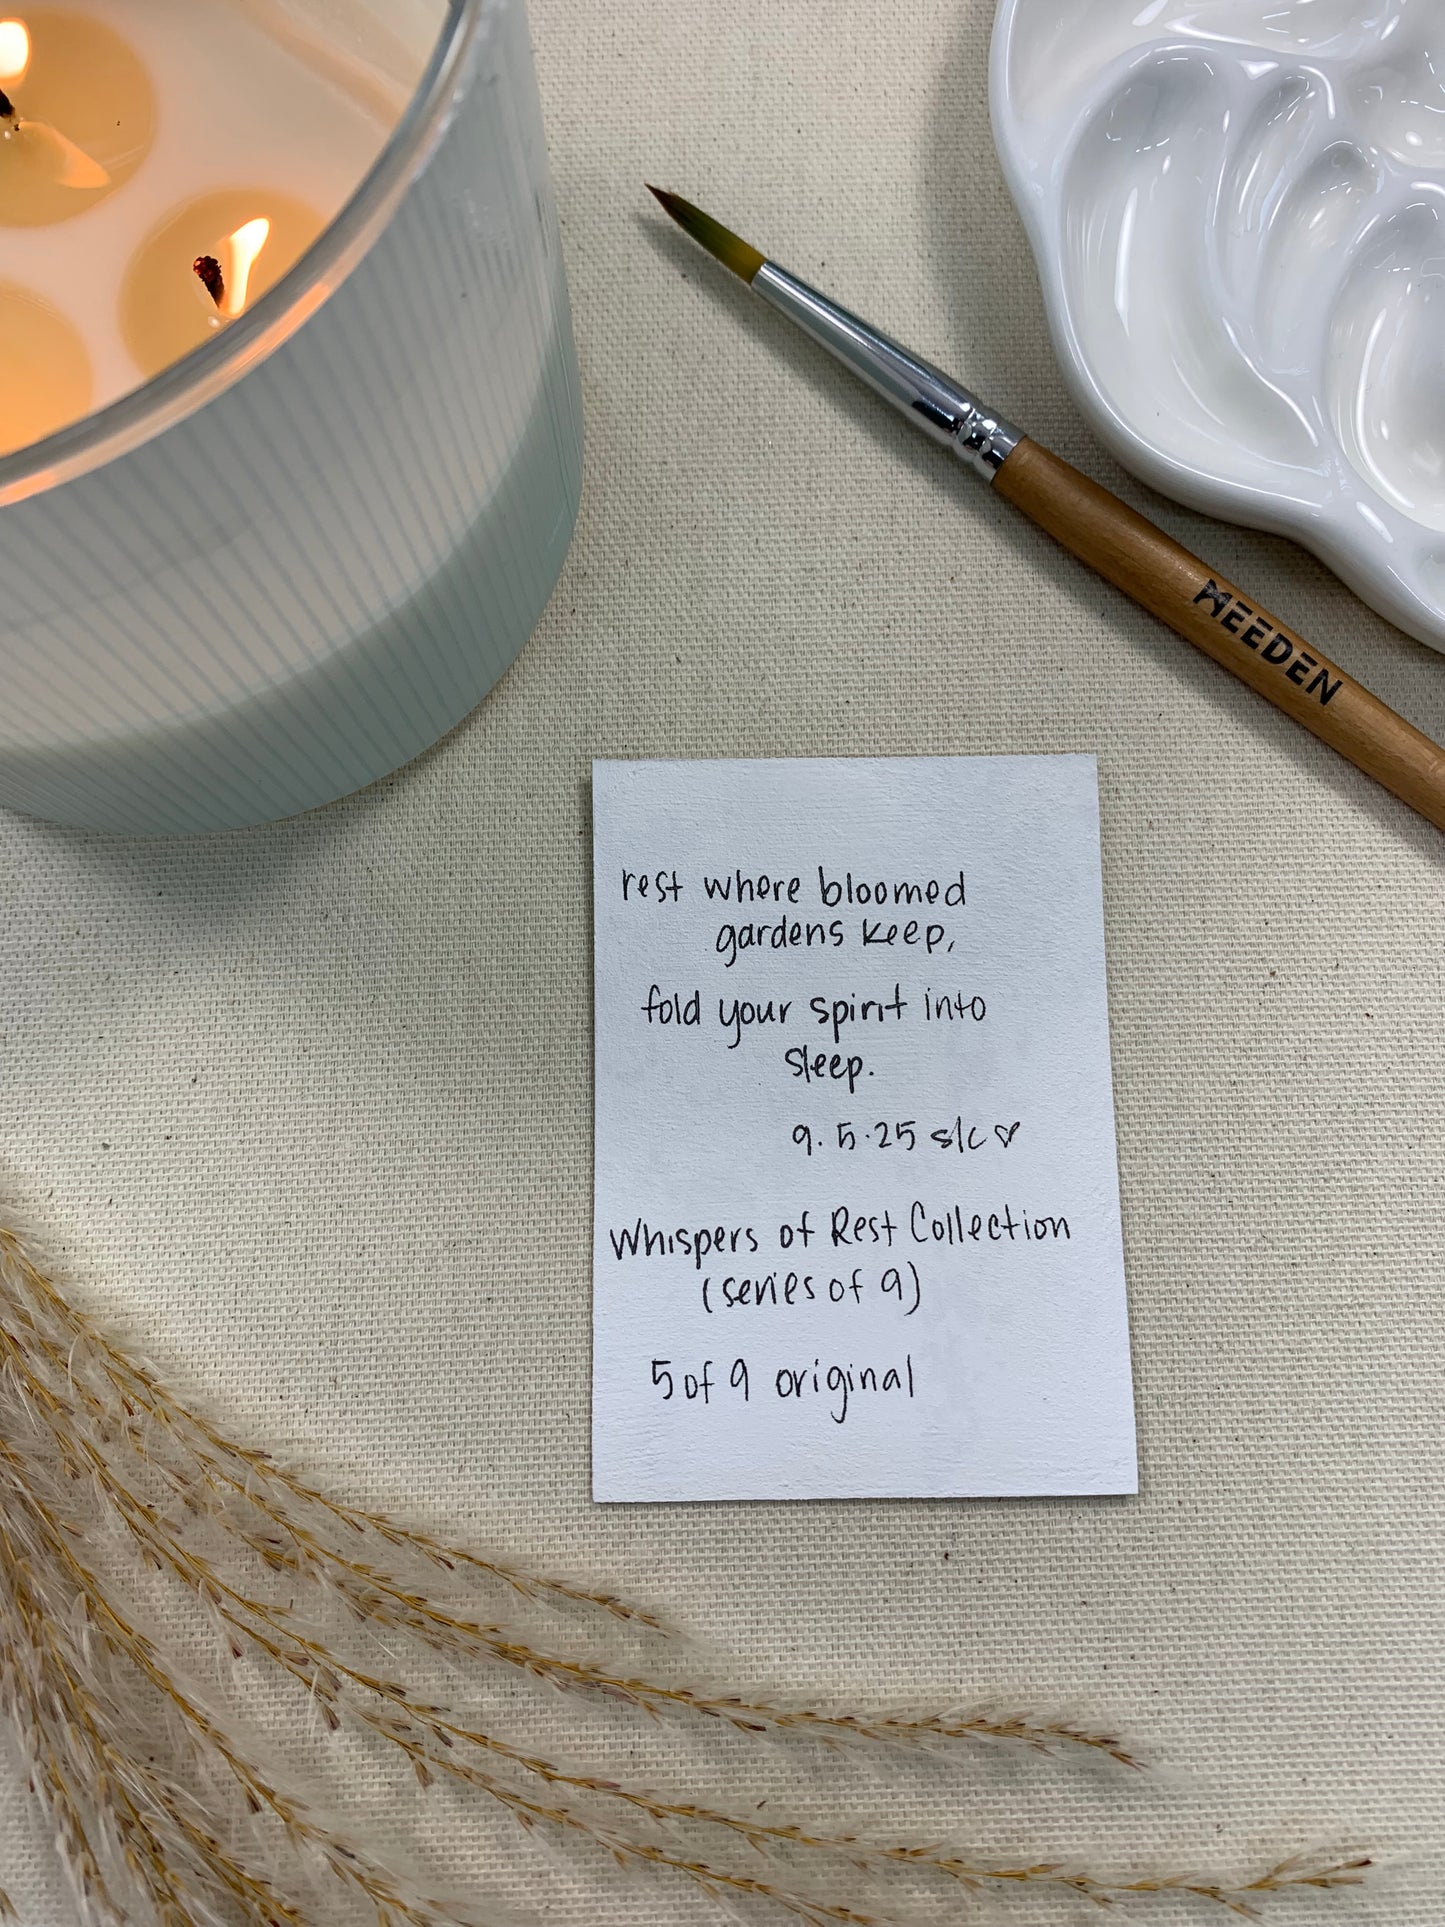 MEEDEN
rest where bloomed
gardens keep,
fold your spirit into
sleep.
9.5.25 slc ♡
Whispers of Rest Collection
(series of 9)
5 of 9 original